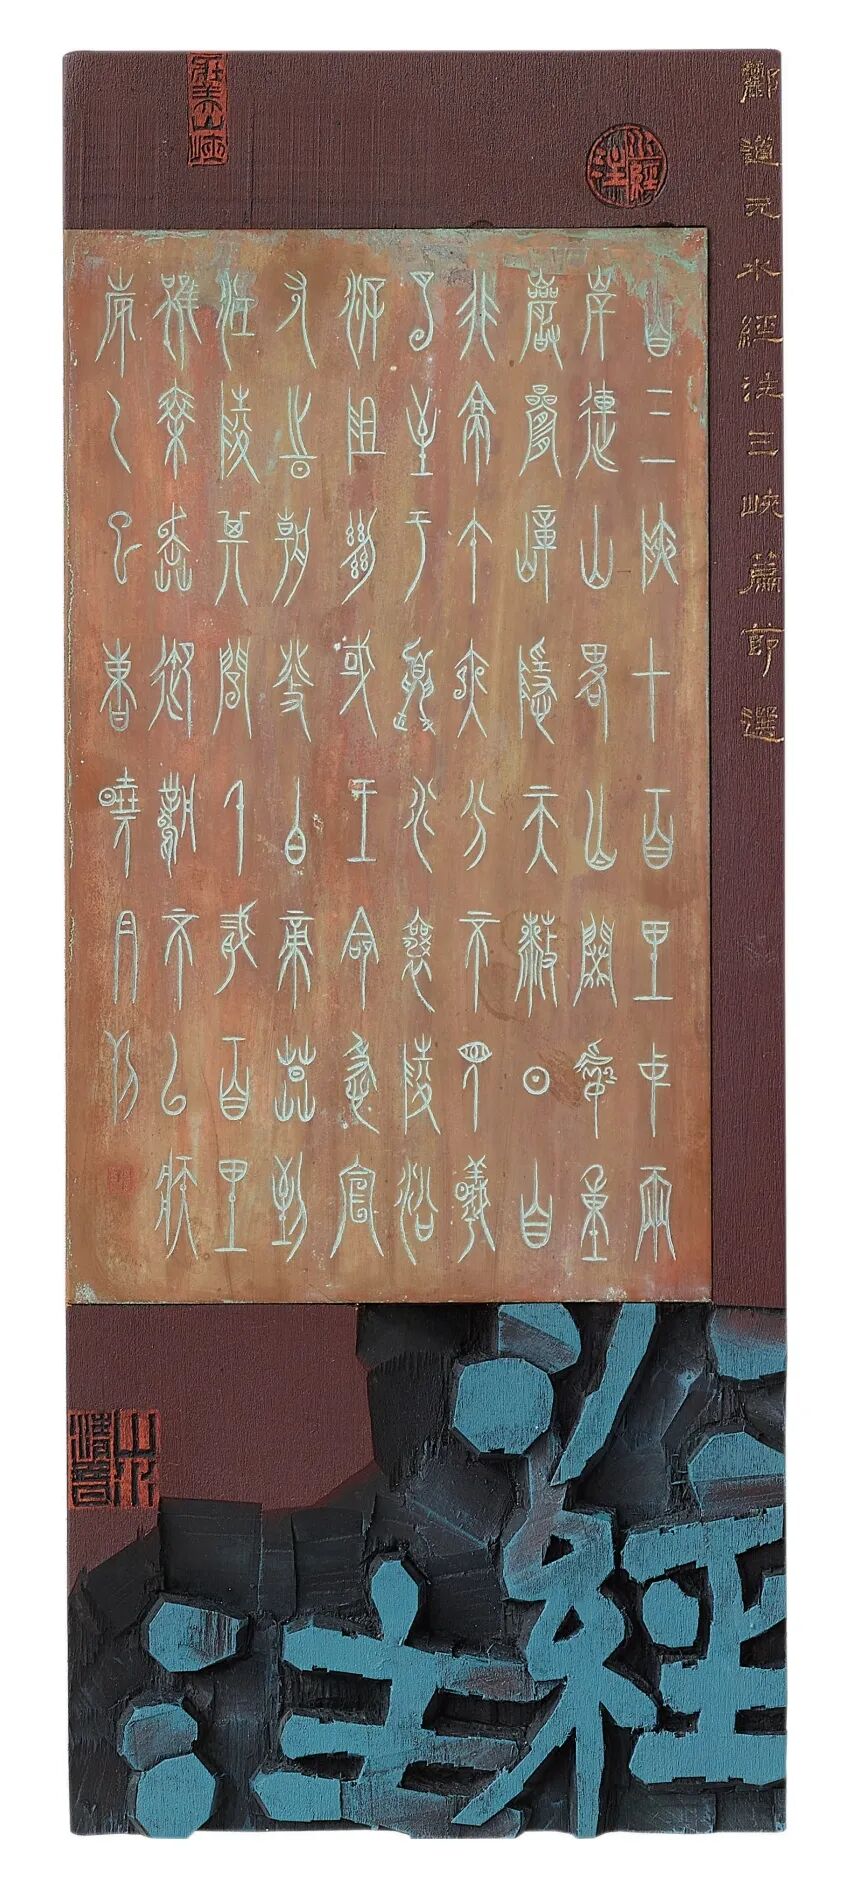 酈道元水經注三峽篇節選
水經注
自三峽七百里中兩
岸連山畧亡闕處重
巖疊嶂隱天蔽日自
非亭午夜分不見曦
月至于夏水襄陵沿
泝阻絕或王命急宣
有時朝發白帝莫到
江陵其間千二百里
雖乘奔御風不以疾
曉月
山水清音
水經注